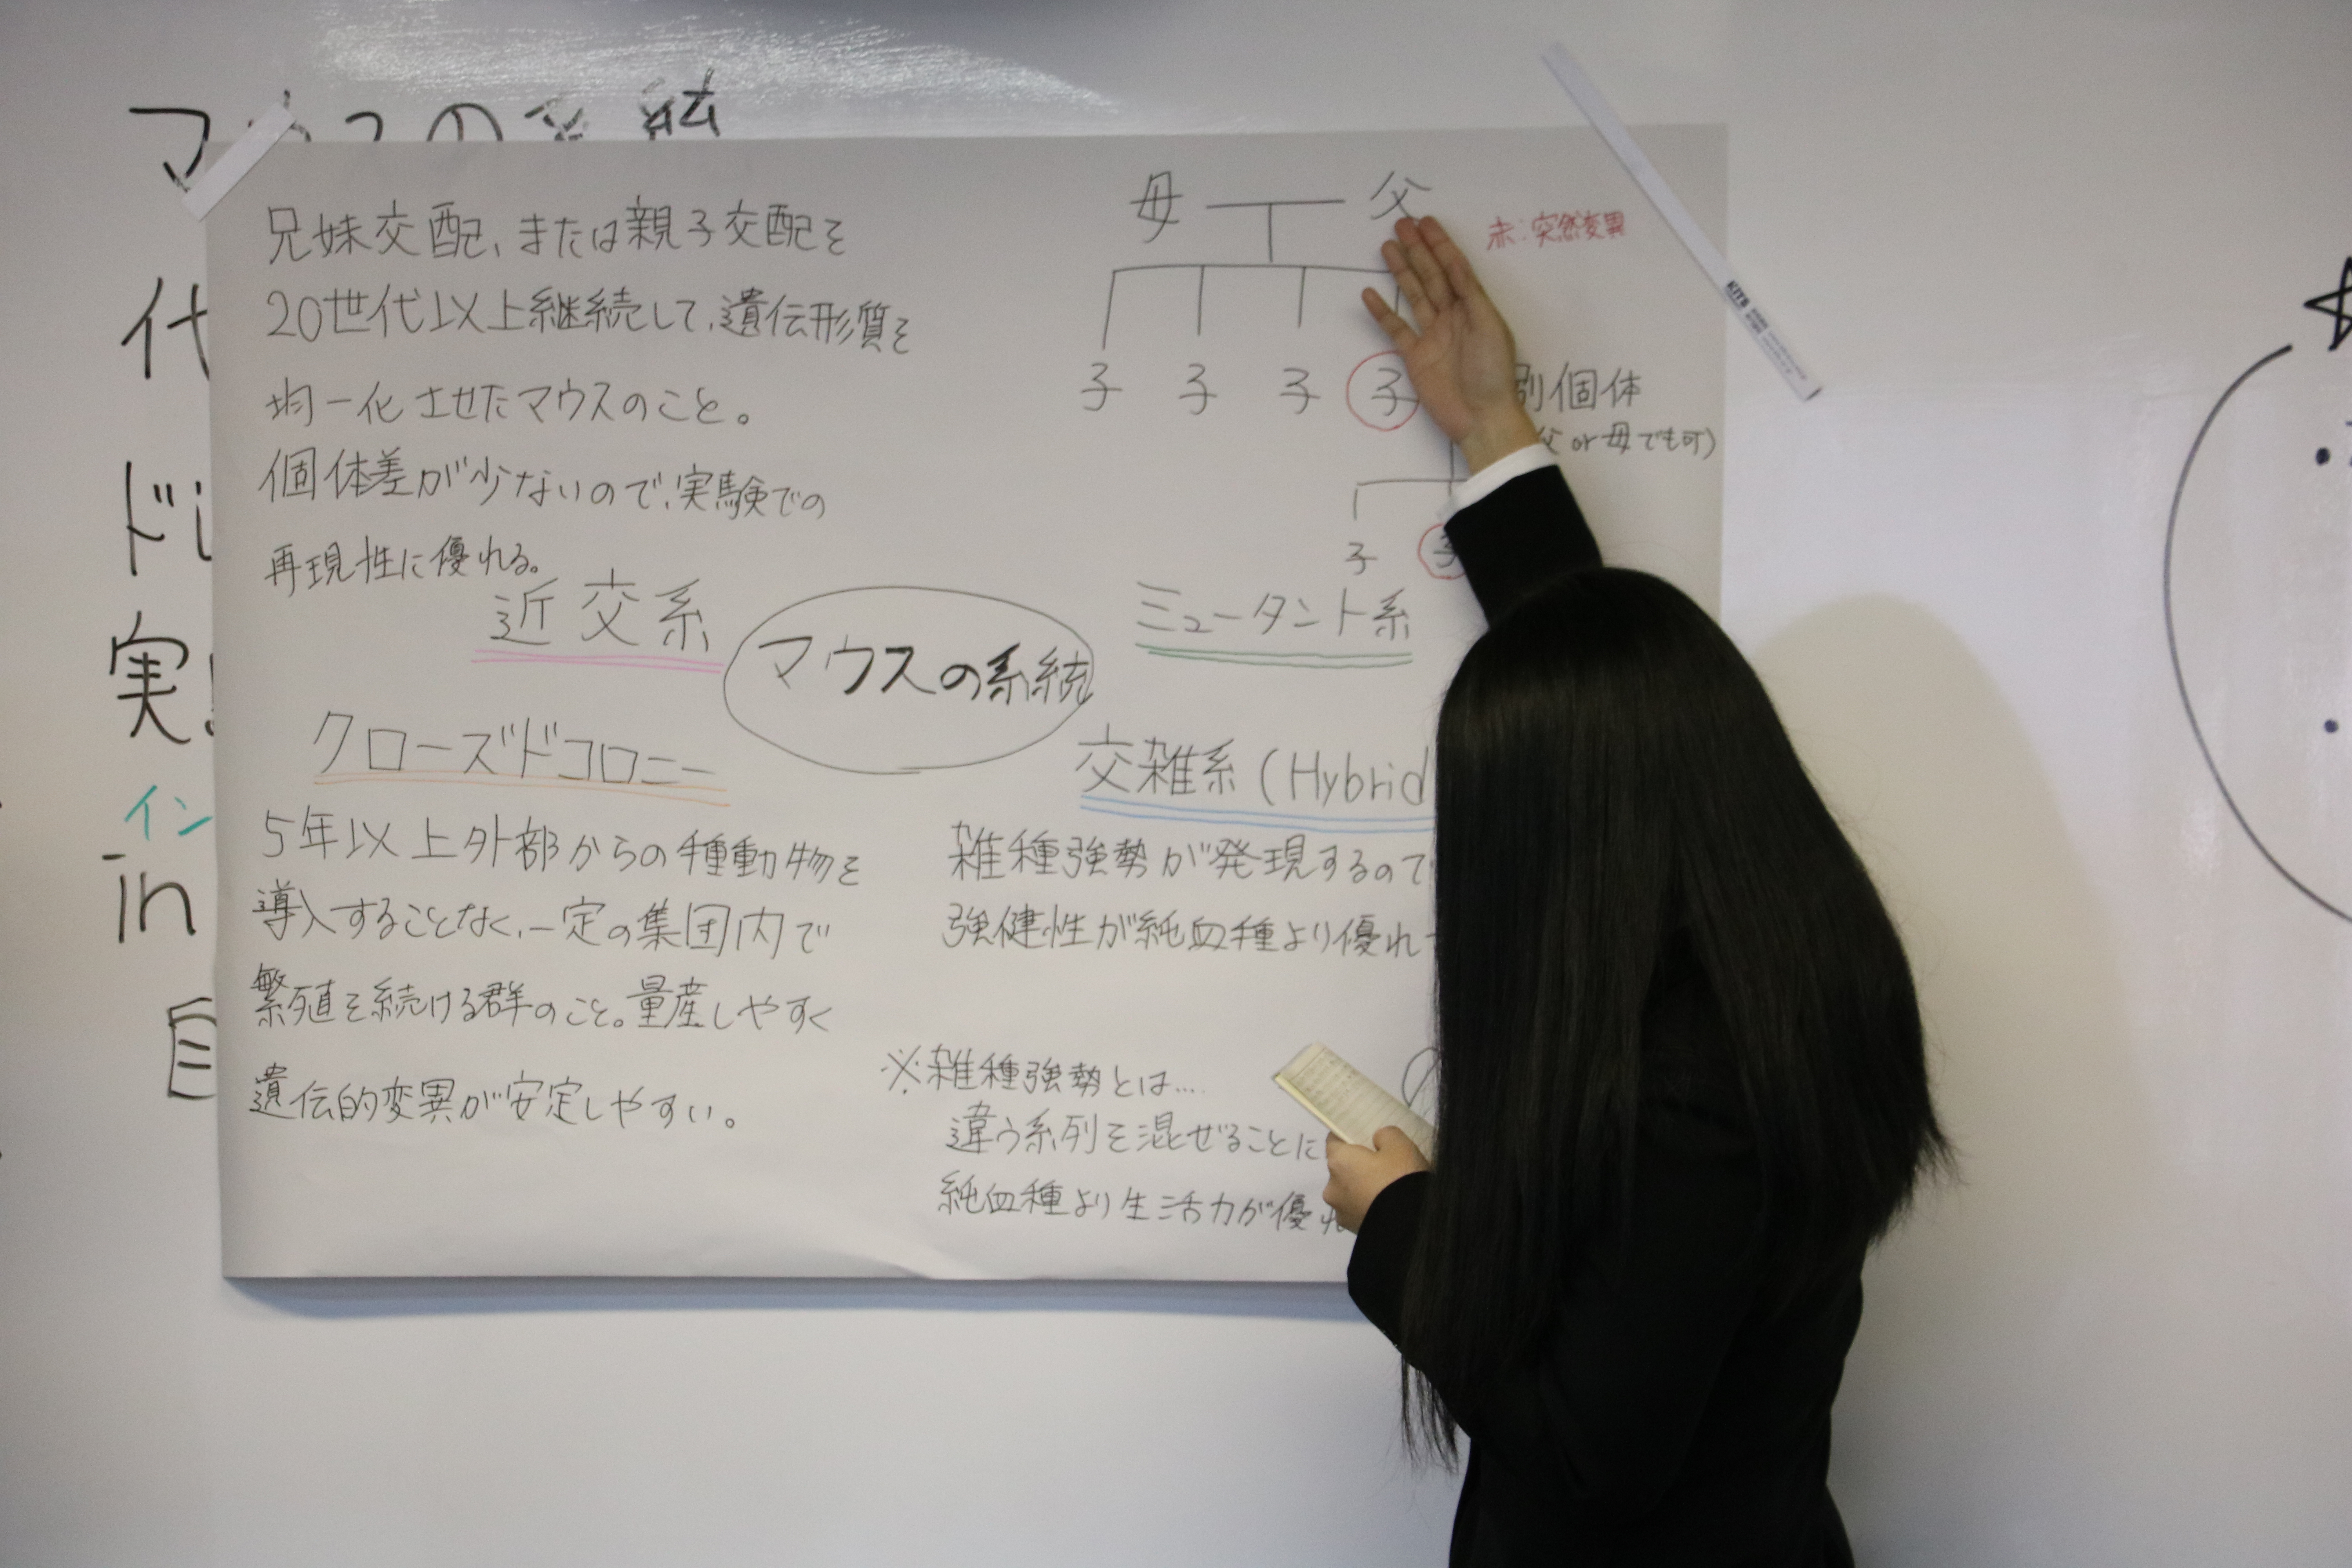 マウスの系統
兄妹交配、または親子交配を
20世代以上継続して、遺伝形質を
均一化させたマウスのこと。
個体差が少ないので、実験での
再現性に優れる。
近交系
母 父
赤:突然変異
子 子 子 子
別個体
父or母でも可)
子 子
ミュータント系
マウスの系統
クローズドコロニー
5年以上外部からの種動物を
導入することなく、一定の集団内で
繁殖を続ける群のこと。量産しやすく
遺伝的変異が安定しやすい。
交雑系(Hybrid
雑種強勢が発現するので
強健性が純血種より優れ
※雑種強勢とは....
違う系列を混ぜることに
純血種より生活力が優れ
代
実
イン
in
自